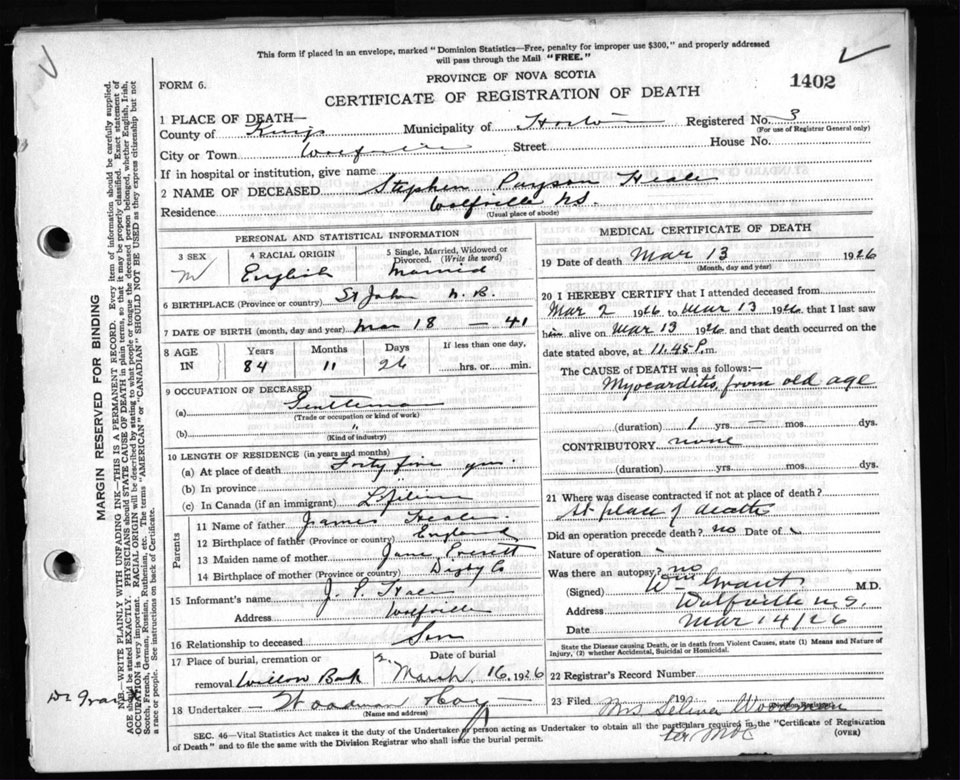 This form if placed in an envelope, marked "Dominion Statistics—Free, penalty for improper use $300," and properly addressed
will pass through the Mail "FREE."
PROVINCE OF NOVA SCOTIA
FORM 6.
1402
CERTIFICATE OF REGISTRATION OF DEATH
1 PLACE OF DEATH—
County of Kings Municipality of Horton Registered No. 3
(For use of Registrar General only)
City or Town Wolfville Street House No.
If in hospital or institution, give name
2 NAME OF DECEASED Stephen Payson Heale
Residence Wolfville N.S.
(Usual place of abode)
PERSONAL AND STATISTICAL INFORMATION
3 SEX 4 RACIAL ORIGIN 5 Single, Married, Widowed or Divorced. (Write the word)
M English Married
6 BIRTHPLACE (Province or country) St John N.B.
7 DATE OF BIRTH (month, day and year) Mar 18 — 41
8 AGE IN Years Months Days If less than one day,
84 11 26 hrs. or min.
9 OCCUPATION OF DECEASED
(a) Gentleman
(Trade or occupation or kind of work)
(b) "
(Kind of industry)
10 LENGTH OF RESIDENCE (in years and months)
(a) At place of death Forty five yrs.
(b) In province
(c) In Canada (if an immigrant) Lifetime
Parents
11 Name of father James Heale
12 Birthplace of father (Province or country) England
13 Maiden name of mother Jane Everett
14 Birthplace of mother (Province or country) Digby Co
15 Informant's name J. P. Heale
Address Wolfville
16 Relationship to deceased Son
17 Place of burial, cremation or removal Willow Bank
Date of burial
March 16, 1926
18 Undertaker — Woodman & Co
(Name and address)
MEDICAL CERTIFICATE OF DEATH
19 Date of death Mar 13 1926
(Month, day and year)
20 I HEREBY CERTIFY that I attended deceased from
Mar 2 1926 to Mar 13 1926, that I last saw
him alive on Mar 13 1926 and that death occurred on the
date stated above, at 11.45 P.m.
The CAUSE of DEATH was as follows:—
Myocarditis from old age
(duration) 1 yrs. — mos. dys.
CONTRIBUTORY none
(duration) yrs. mos. dys.
21 Where was disease contracted if not at place of death?
At place of death
Did an operation precede death? no Date of
Nature of operation
Was there an autopsy? no
(Signed) Wm Grant M.D.
Address Wolfville N.S.
Date Mar 14/26
State the Disease causing Death, or in death from Violent Causes, state (1) Means and Nature of
Injury, (2) whether Accidental, Suicidal or Homicidal.
22 Registrar's Record Number
23 Filed 19
Mrs Selina Woodman
Division Registrar
per
SEC. 46—Vital Statistics Act makes it the duty of the Undertaker or person acting as Undertaker to obtain all the particulars required in the "Certificate of Registration
of Death" and to file the same with the Division Registrar who shall issue the burial permit.
(OVER)
MARGIN RESERVED FOR BINDING
N.B.—WRITE PLAINLY WITH UNFADING INK—THIS IS A PERMANENT RECORD. Every item of information should be carefully supplied.
AGE should be stated EXACTLY. PHYSICIANS should STATE CAUSE OF DEATH in plain terms, so that it may be properly classified. Exact statement of
OCCUPATION is very important. RACIAL ORIGIN will be described by stating to what people or tongue the deceased person belonged, whether English, Irish,
Scotch, French, German, Russian, Ruthenian, etc. The terms "AMERICAN" or "CANADIAN" SHOULD NOT BE USED as they express citizenship but not
a race or people. See instructions on back of Certificate.
Dr Grant